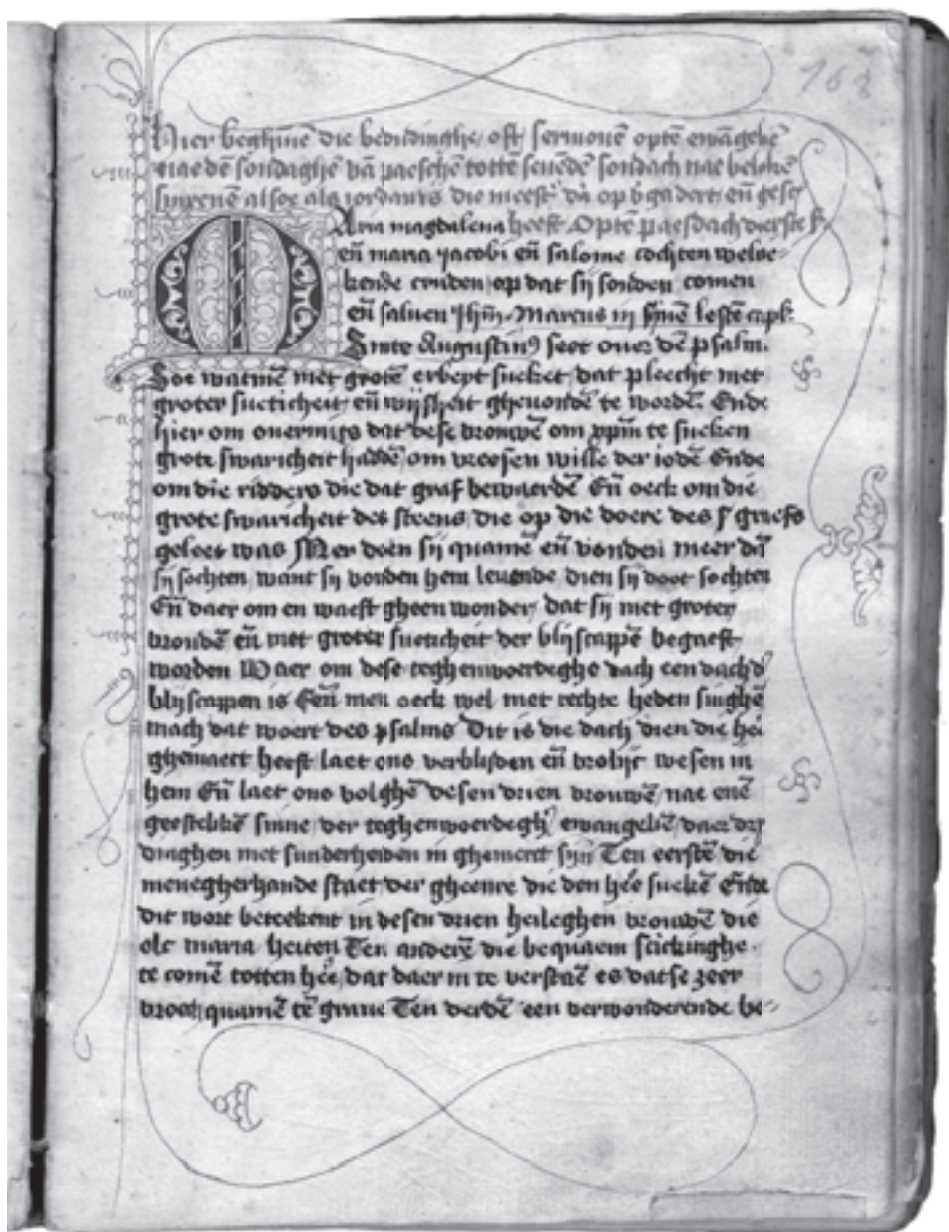 163
Hier beghīnē die bedudinghe oft sermonē optē ewāgeliē
nae dē sondaghē vā paeschē tottē seuēdē sondach nae
alsoe als iordanus die meest' dā op v'gadert eñ
Aria magdalena heeft Optē paesdach dierste
eñ maria jacobi eñ salome cochten welrie-
kende cruden op dat sij souden comen
eñ saluen Ihm̄ Marcus in sinē lestē capł.
Sinte Augustinꝰ seet ouer dē psalm.
Soe watmē met grotē erbeyt sueket dat pleecht met
groter sueticheit eñ wijsheit gheuondē te worden. Ende
hier om ouermits dat dese vrouwē om te sueken
grote swaricheit haddē om vreesen wille der iodē Ende
om die ridders die dat graf bewaerdē Eñ oeck om die
grote swaricheit des steens die op die doere des graefs
geleet was Mer doen sij quamē eñ vonden meer dā
sij sochten want sij vonden hem leuende dien sij doot sochten
Eñ daer om en waest gheen wonder dat sij met groter
vroudē eñ met groter sueticheit der blijscappē begaeft
worden Waer om dese teghenwoerdeghe dach een dach d'
blijscappen is Eñ men oeck wel met rechte heden singhē
mach dat woert des psalms Dit is die dach dien die hē
ghemaect heeft laet ons verblijden eñ vrolijc wesen in
hem Eñ laet ons volghē desen drien vrouwē nae enē
geestelikē sinne der teghenwoerdegh' ewangeliē daer
dinghen met sunderheiden in ghemerct sijn Ten eerstē die
menegherhande staet der gheenre die den hēe suekē Ende
dit wort beteekent in desen drien heileghen vrouwē die
alle maria heiten Ten anderē die bequaem scickinghe
te comē totten hēe dat daer in te verstaē es datse zeer
vroech quamē tē graue Ten derdē een verwonderende be-